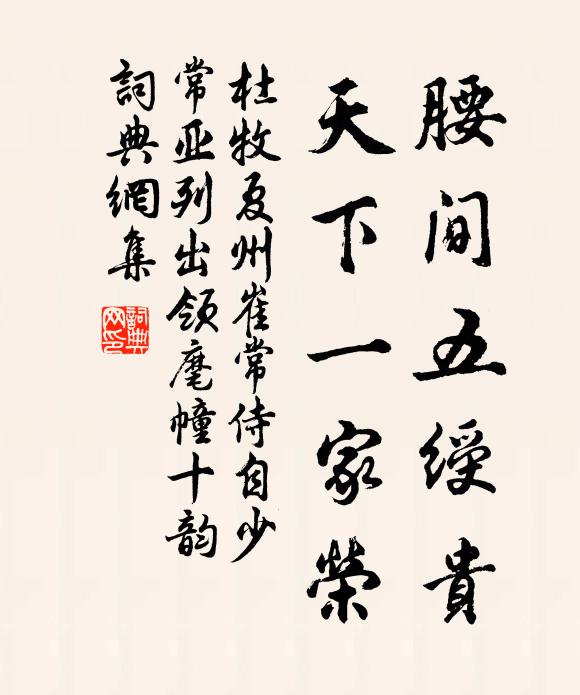 腰間五綬貴
天下一家榮
杜牧夏州崔常侍自少
常亚列出领麾幢十韵
詞典網集
詞典网印